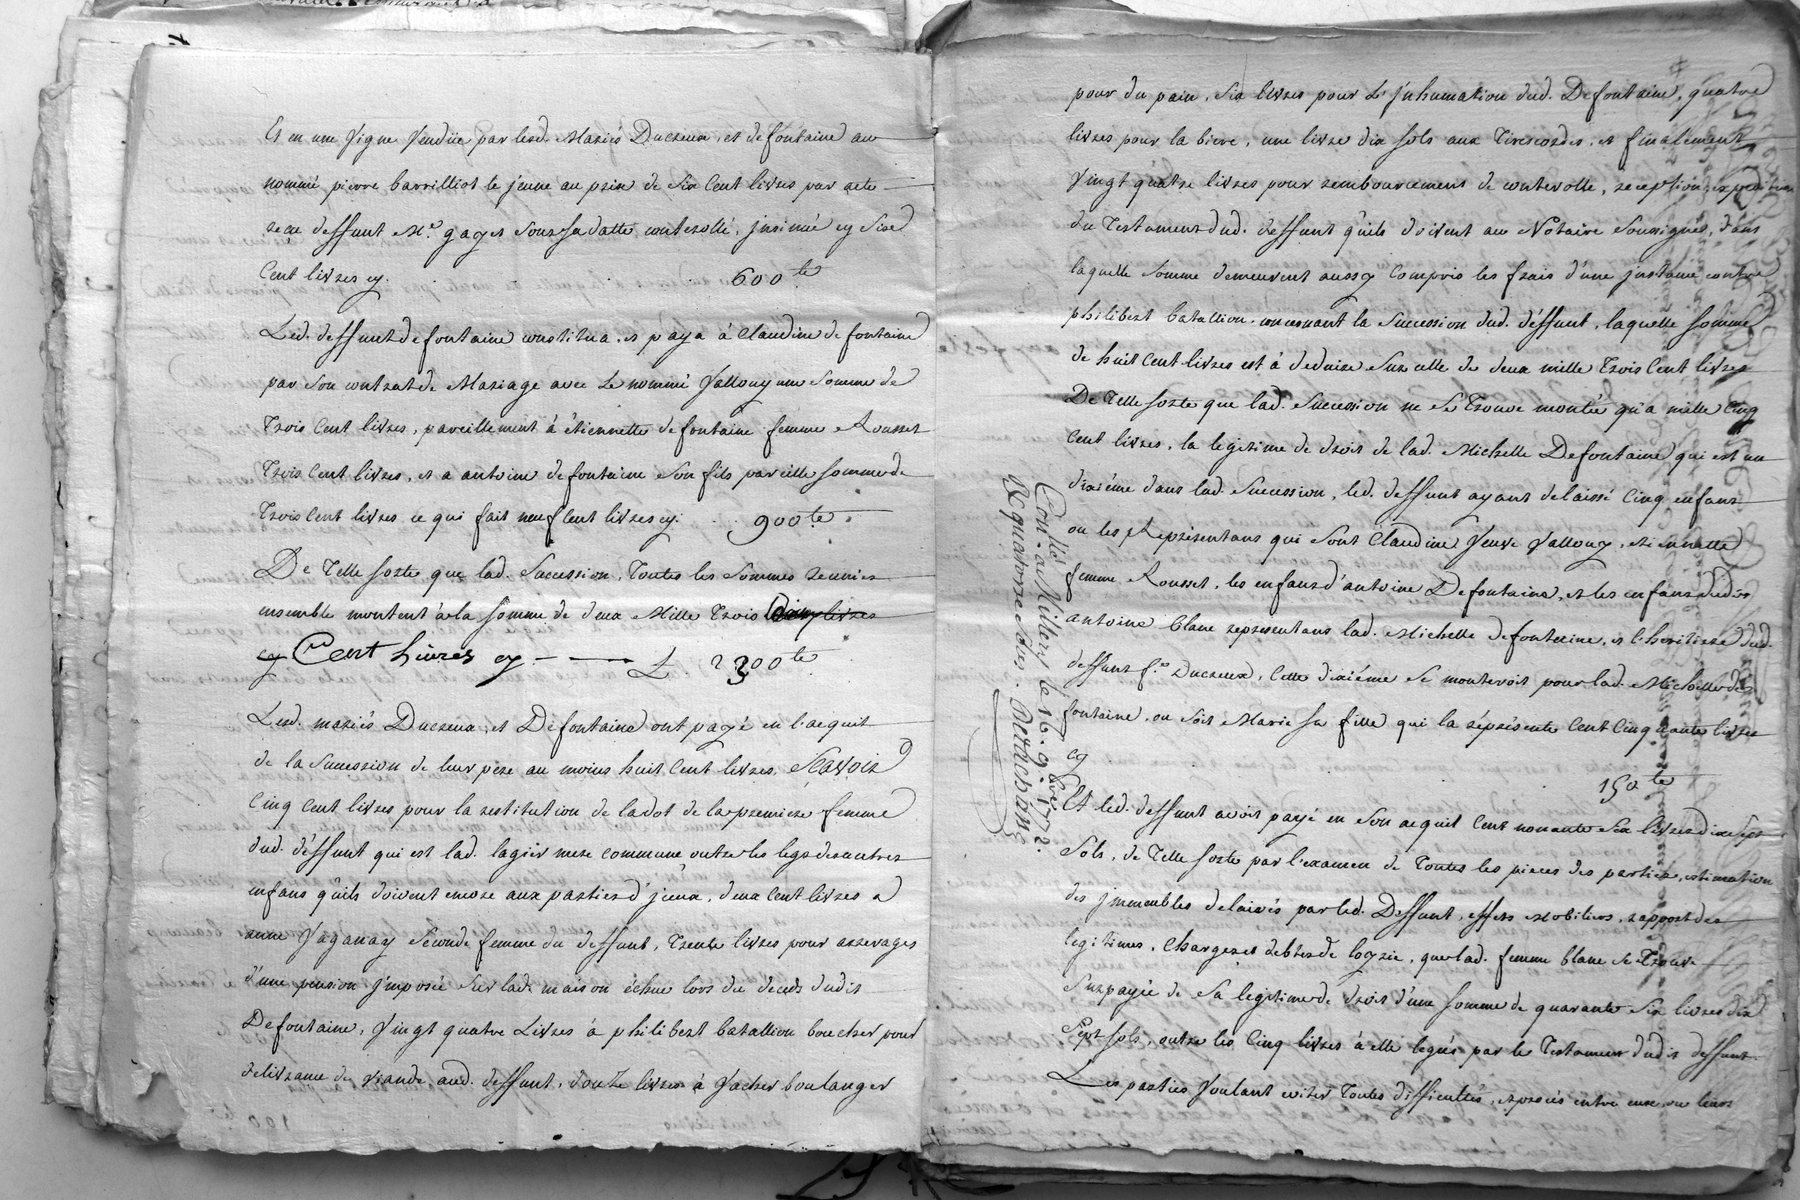 Et en une Vigne Vendüe par lesd. Mariés Ducreux, et de fontaine au
nommé pierre barrilliot le jeune au prix de Six Cent livres par acte
reçu deffunt Me. gayet Sous sa datte controllé, jnsinüé cy Sixe
Cent livres cy. 600 tt
Led. deffunt de fontaine constitua, et paya à Claudine de fontaine
par Son contrat de Mariage avec Le nommé Vallouy une Somme de
Trois Cent livres, pareillement à étiennette de fontaine femme Rousset
Trois Cent livres, et a antoine de fontaine Son fils pareille somme de
Trois Cent livres ce qui fait neuf Cent livres cy. 900 tt
De Telle sorte que lad. Succession, Toutes les Sommes reunies
ensemble montent à la somme de deux Mille Trois livres
cy Cent Livres cy £ 2300 tt
Lesd. mariés Ducreux, et Defontaine ont payé en l'acquit
de la Succession de leur pere au moins huit Cent livres, Scavoir
Cinq Cent livres pour la restitution de la dot de la premiere femme
dud. deffunt qui est lad. lagier mere commune outre les legs des autres
enfans qu'ils doivent encore aux parties d'jceux, deux Cent livres a
anne Vaganay Seconde femme du deffunt, Trente livres pour arrerages
d'une pension jmposée Sur lad. maison échue lors du deceds dudit
Defontaine, Vingt quatre Livres à philibert batallion boucher pour
delivrance de viande aud. deffunt, douze livres à Vacher boulanger
pour du pain, Six livres pour L'jnhumation dud. Defontaine, quatre
livres pour la biere, une livre dix sols aux Tirecordes, et finalement
Vingt quatre livres pour remboursement de controlle, reception, expedition
du Testament dud. deffunt qu'ils doivent au Notaire Soussigné, dans
laquelle Somme demeurent aussy Compris les frais d'une jnstance contre
philibert batallion concernant la Succession dud. deffunt, laquelle somme
de huit Cent livres est à deduire Sur celle de deux mille Trois Cent livres
De Telle sorte que lad. Succession ne Se Trouve montée qu'a mille Cinq
Cent livres, la legitime de droit de lad. Michelle Defontaine qui est un
dixiéme dans lad. Succession, led. deffunt ayant delaissé Cinq enfans
ou les Représentans qui Sont Claudine Veuve Vallouy, etiennette
femme Rousset, les enfans d'antoine Defontaine, et les enfans dudit
antoine blanc representans lad. Michelle defontaine, et l'heritiere dud.
deffunt fe. Ducreux, Cette dixiéme Se monteroit pour lad. Michelle de
fontaine, ou Soit Marie Sa fille qui la réprésente Cent Cinquante livres
cy 150 tt
Et led. deffunt avoit payé en Son acquit Cent nonante Six livres dix sept
Sols, de Telle sorte par l'examen de Toutes les pieces des parties, estimation
des jmmeubles delaissés par led. Deffunt, effets Mobiliers, rapport des
legitimes, Charges et debtes de loyrie, que lad. femme blanc Se Trouve
Surpayée de Sa legitime de droit d'une Somme de quarante Six livres dix
Sept sols, outre les Cinq livres à elle legués par le Testament dudit deffunt
Les parties Voulant eviter Toutes difficultés, et procés entre eux, ou leurs
Conllé a Millery le 16. 9bre 1772.
R quatorze sols. Berchoux